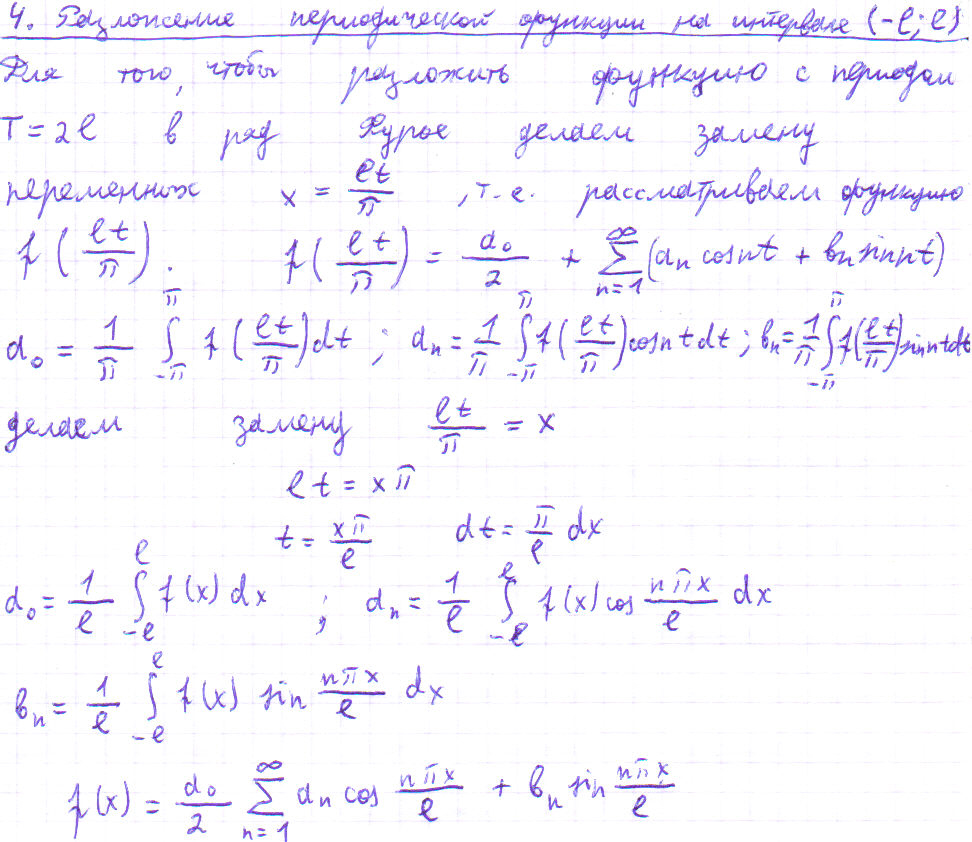 4. Разложение периодической функции на интервале (-l; l)
Для того, чтобы разложить функцию с периодом
T = 2l в ряд Фурье делаем замену
переменных x = lt/π , т.е. рассматриваем функцию
f(lt/π). f(lt/π) = a₀/2 + ∑_{n=1}^{∞} (aₙ cos nt + bₙ sin nt)
a₀ = 1/π ∫_{-π}^{π} f(lt/π) dt ; aₙ = 1/π ∫_{-π}^{π} f(lt/π) cos nt dt ; bₙ = 1/π ∫_{-π}^{π} f(lt/π) sin nt dt
делаем замену lt/π = x
lt = xπ
t = xπ/l dt = π/l dx
a₀ = 1/l ∫_{-l}^{l} f(x) dx ; aₙ = 1/l ∫_{-l}^{l} f(x) cos nπx/l dx
bₙ = 1/l ∫_{-l}^{l} f(x) sin nπx/l dx
f(x) = a₀/2 ∑_{n=1}^{∞} aₙ cos nπx/l + bₙ sin nπx/l